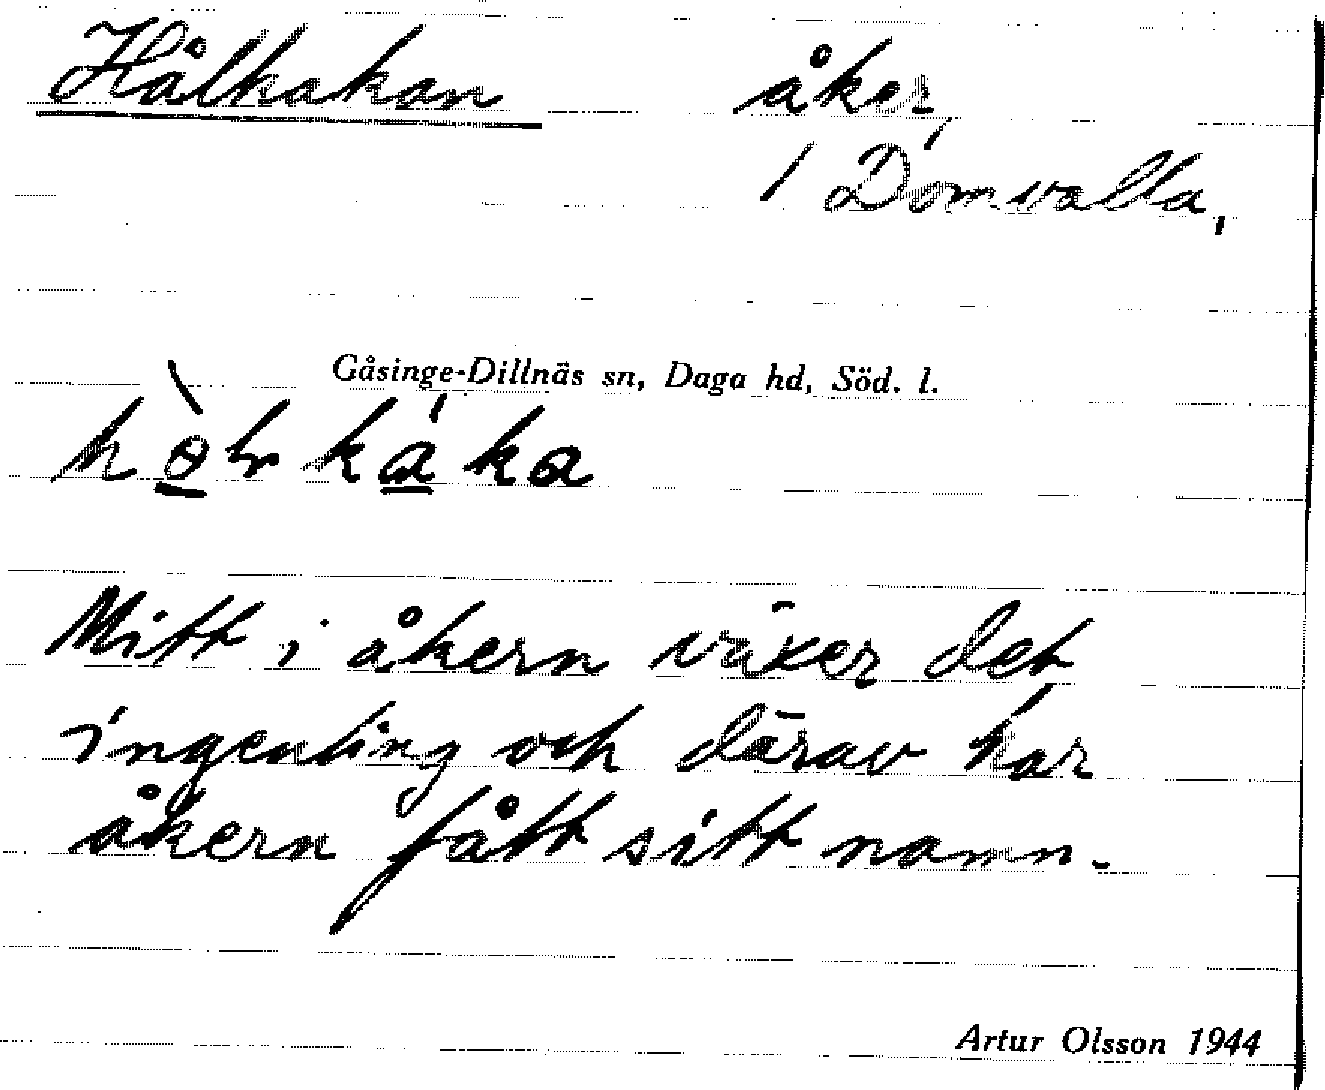 Hålkakan åker,
/ Domvalla,
Gåsinge-Dillnäs sn, Daga hd, Söd. l.
Mitt i åkern växer det
ingenting och därav har
åkern fått sitt namn.
Artur Olsson 1944